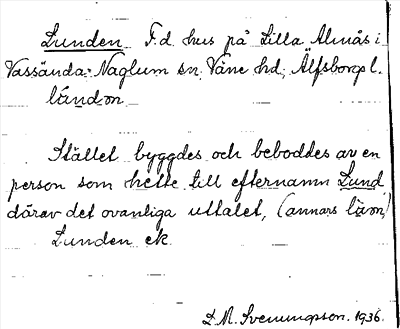 Lunden F.d. hus på Lilla Almås i
Vassända-Naglum sn, Väne hd, Älfsborgs l.
lúndən
Stället byggdes och beboddes av en
person som hette till efternamn Lund,
därav det ovanliga uttalet, (annars
Lunden ek.
D.M. Svenungson. 1936.